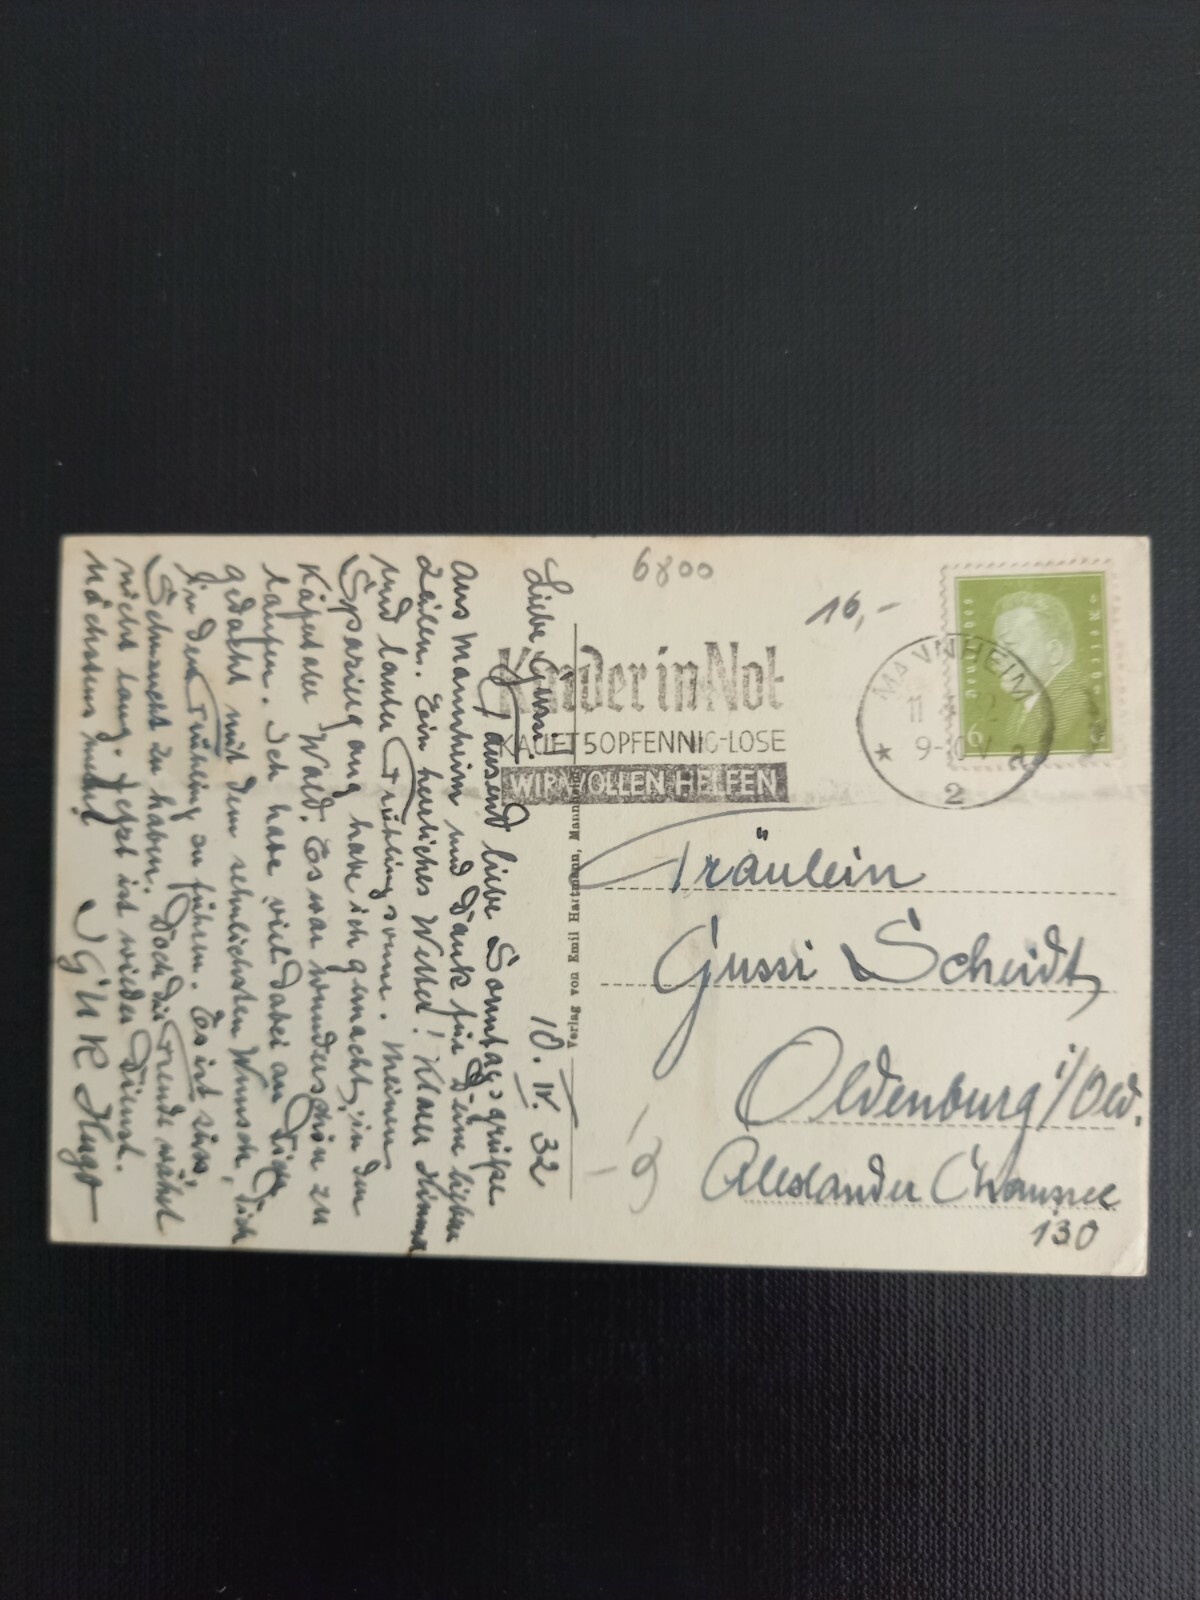 6800
16,-
Kinder in Not
KAUFT 50PFENNIG-LOSE
WIR WOLLEN HELFEN
MANNHEIM
11
9-10V
2
a
6
Fräulein
Gussi Scheidt
Oldenburg i/Old.
Alexander Chaussee
130
Verlag von Emil Hartmann, Mann
10. IV. 32
Liebe Gussi!
Tausend liebe Sonntagsgrüße
aus Mannheim und Dank für Deine lieben
Zeilen. Ein herrliches Wetter! Klarer Himmel
und lauter Frühlingssonne. Meinen
Spaziergang habe ich gemacht, in den
Käfertaler Wald. Es war wunderschön zu
laufen. Ich habe viel dabei an Dich
gedacht mit dem sehnlichsten Wunsch, Dich
in den Frühling zu führen. Es ist süss,
Sehnsucht zu haben. Doch die Freude währt
nicht lang. Jetzt ist wieder Dienst.
Nächstens mehr!
Hugo